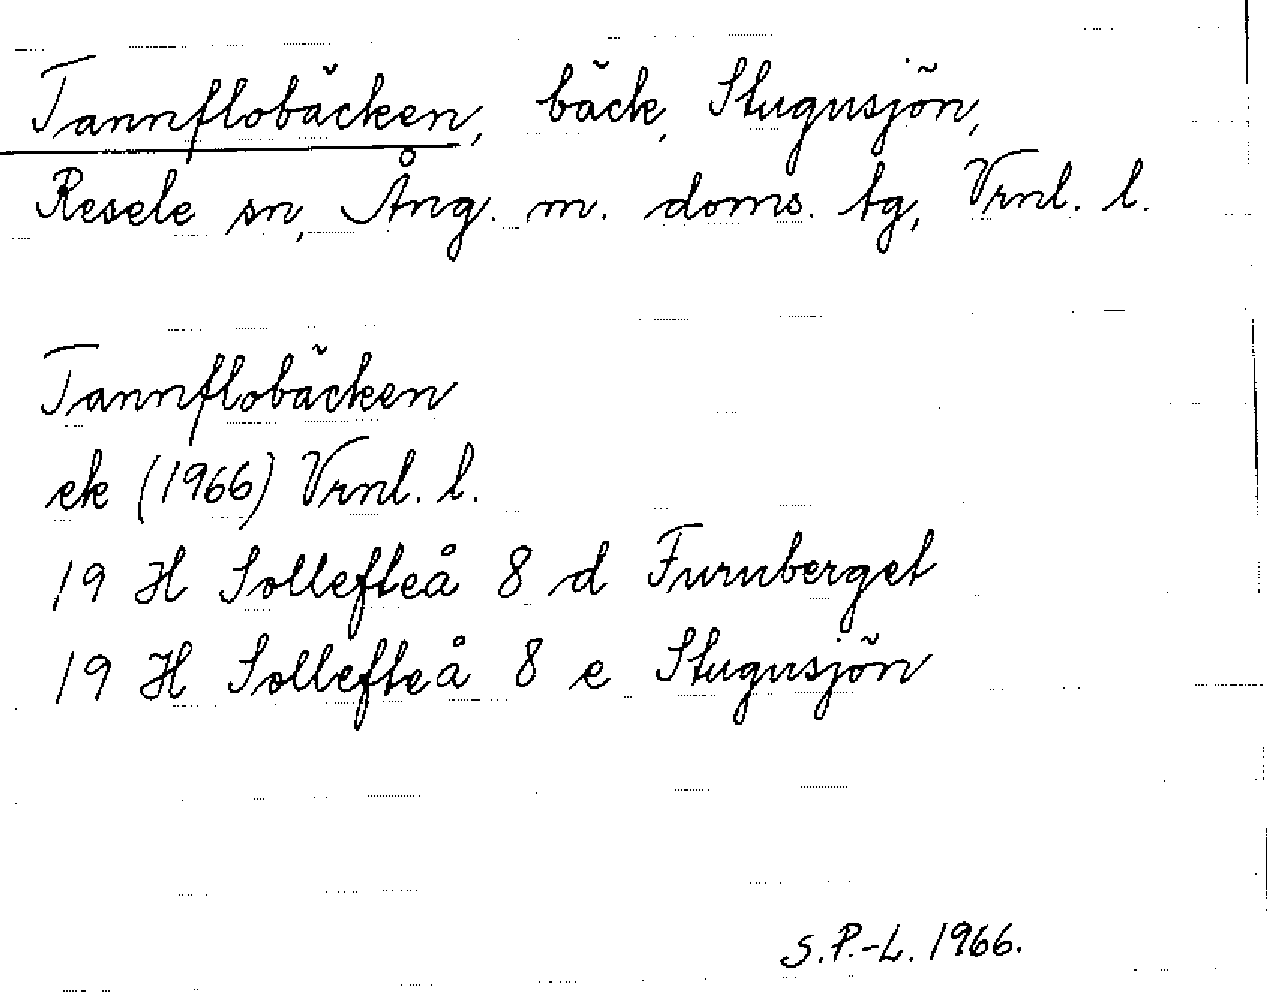 Tannflobäcken, bäck, Stugusjön,
Resele sn, Ång. m. doms. tg, Vrnl. l.
Tannflobäcken
ek (1966) Vrnl. l.
19 H Sollefteå 8 d Furuberget
19 H Sollefteå 8 e Stugusjön
S.P.-L. 1966.